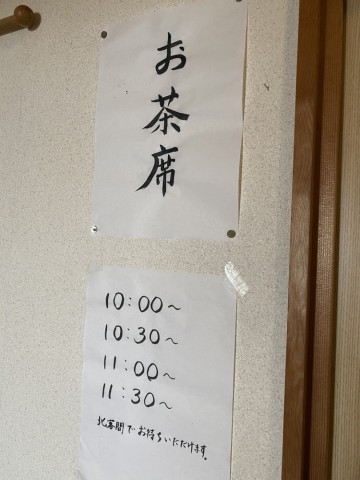 お茶席
10:00〜
10:30〜
11:00〜
11:30〜
北客間でお待ちいただけます。